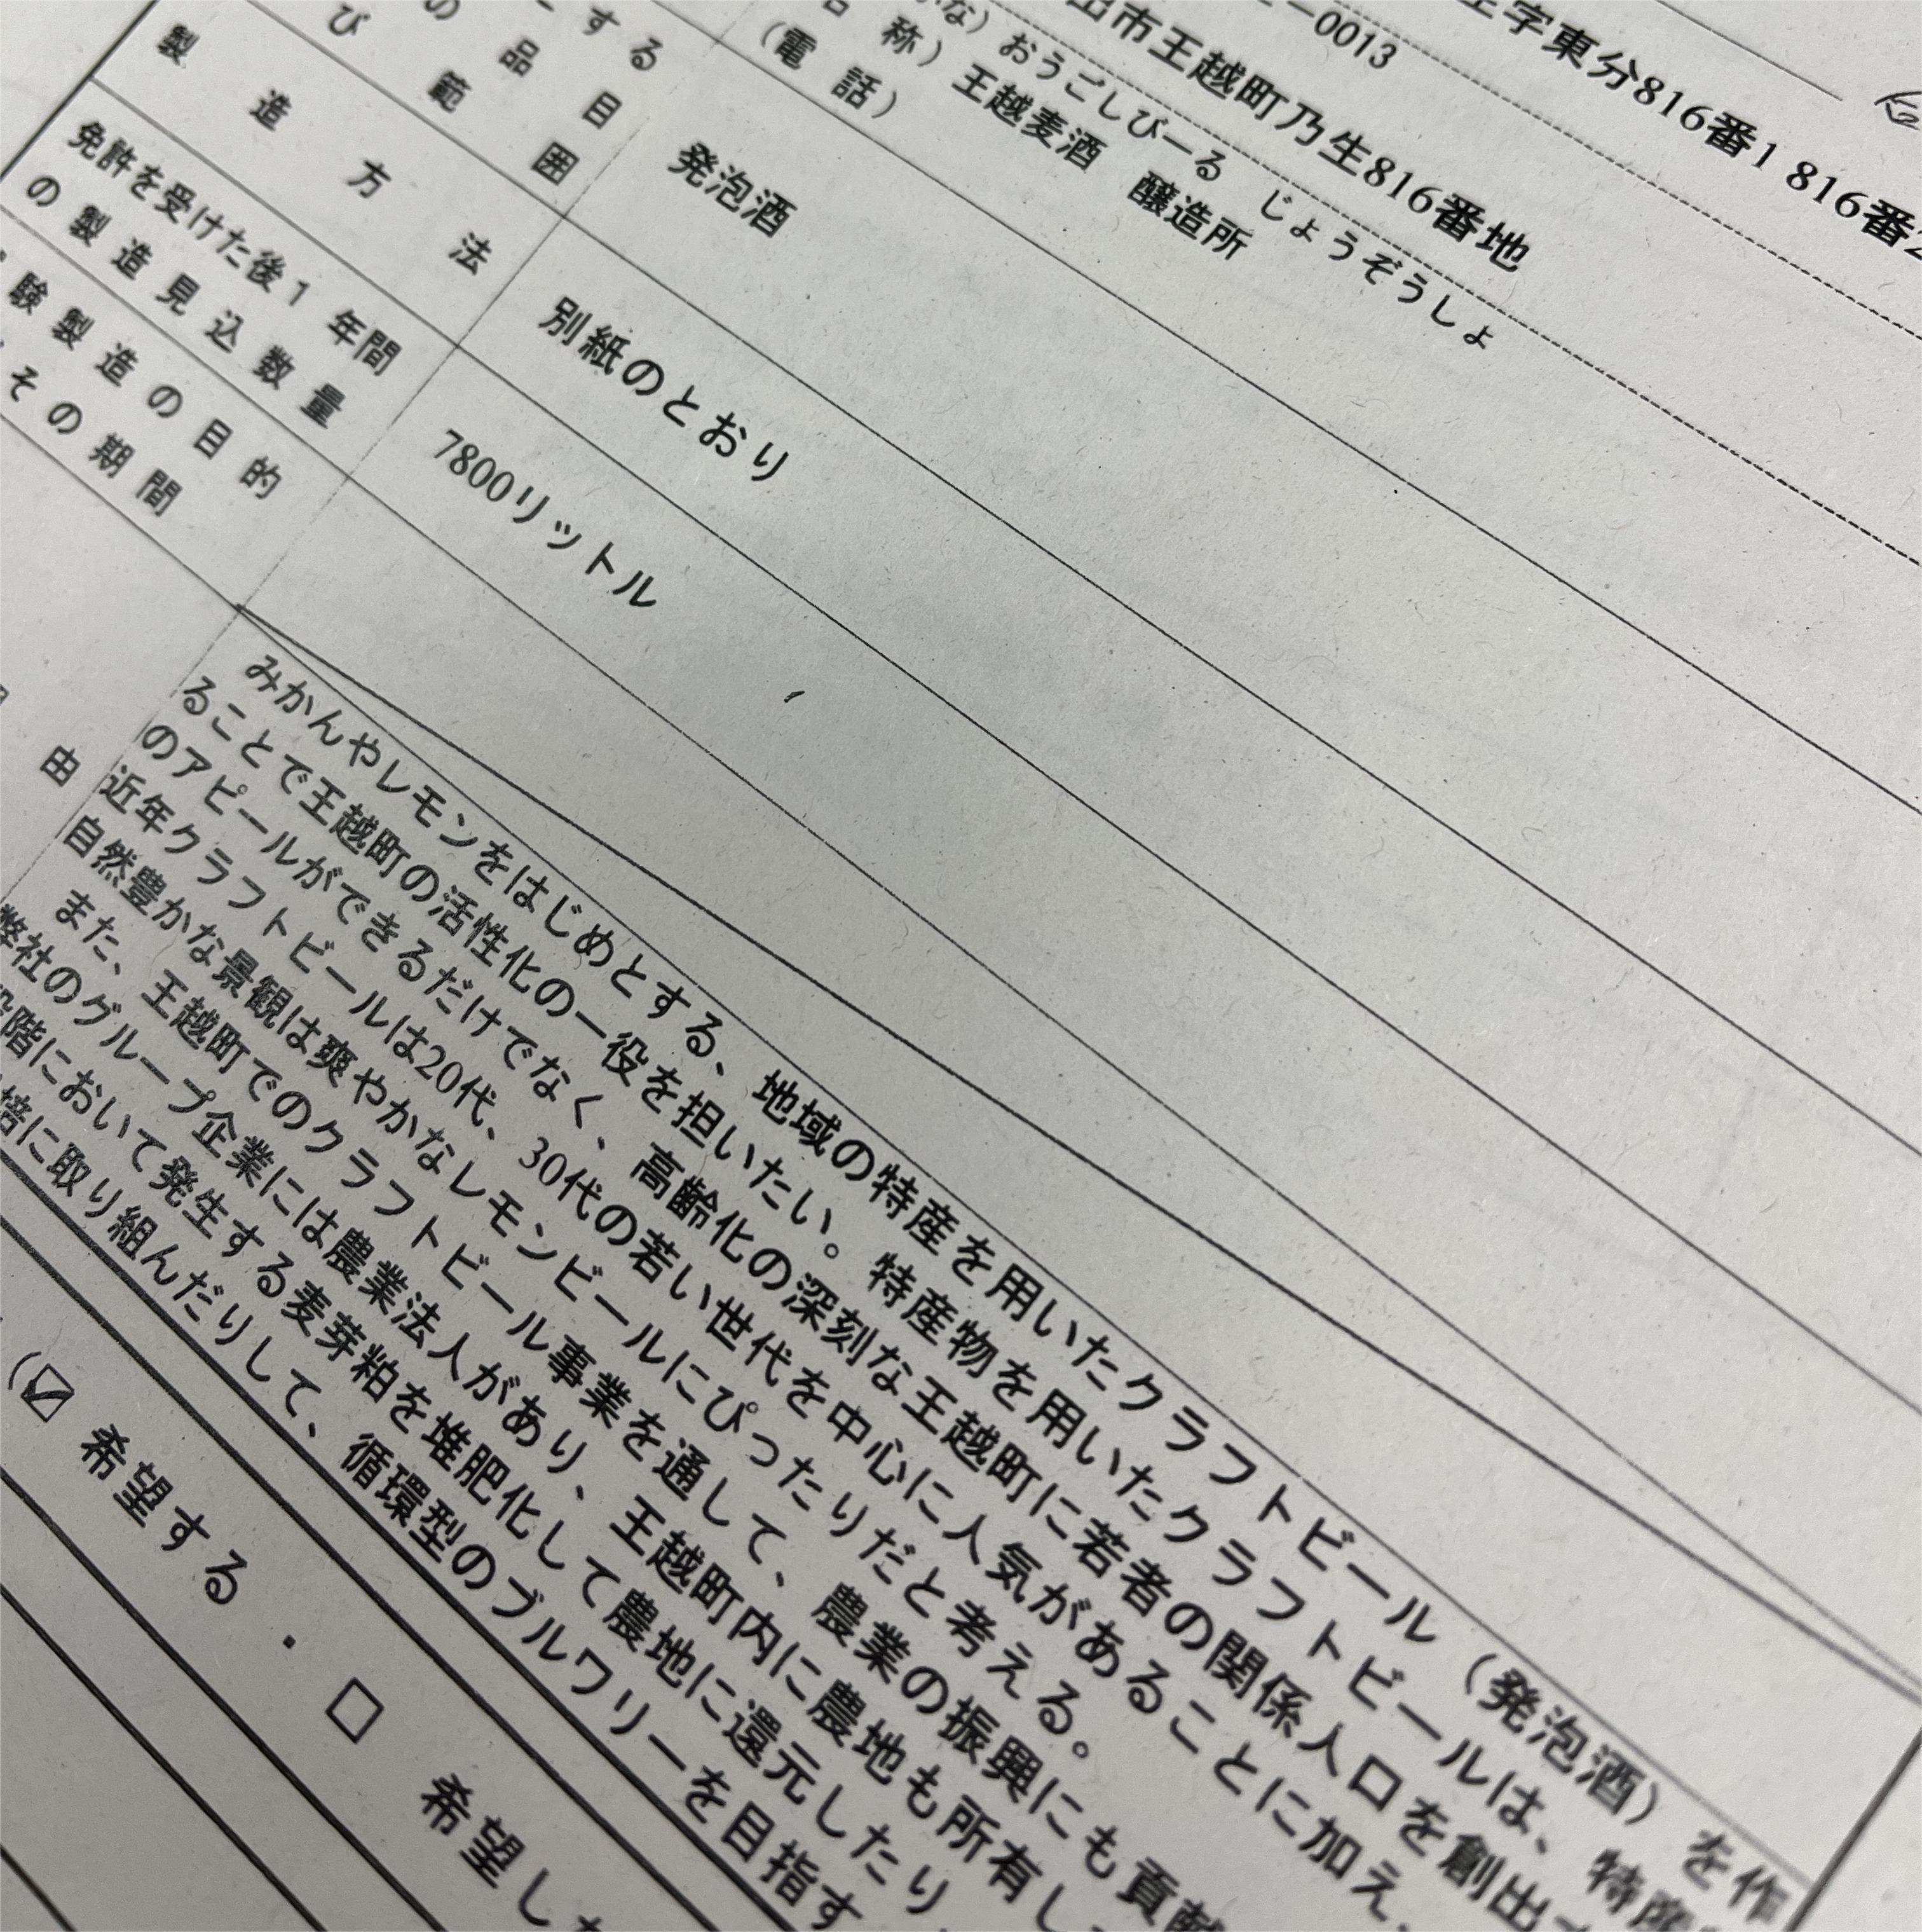 王字東分816番1 816番2
0013
出市王越町乃生816番地
な）おうごしびーる　じょうぞうしょ
称）王越麦酒　醸造所
（電　話）
する
の品目
び範囲
発泡酒
製造方法
別紙のとおり
免許を受けた後1年間
の製造見込数量
7800リットル
験製造の目的
その期間
由
みかんやレモンをはじめとする、地域の特産を用いたクラフトビール（発泡酒）を作
ることで王越町の活性化の一役を担いたい。特産物を用いたクラフトビールは、特産
のアピールができるだけでなく、高齢化の深刻な王越町に若者の関係人口を創出
近年クラフトビールは20代、30代の若い世代を中心に人気があることに加え、
自然豊かな景観は爽やかなレモンビールにぴったりだと考える。
また、王越町でのクラフトビール事業を通して、農業の振興にも貢献
弊社のグループ企業には農業法人があり、王越町内に農地も所有し
段階において発生する麦芽粕を堆肥化して農地に還元したり
培に取り組んだりして、循環型のブルワリーを目指す
（☑ 希望する ・ □ 希望し